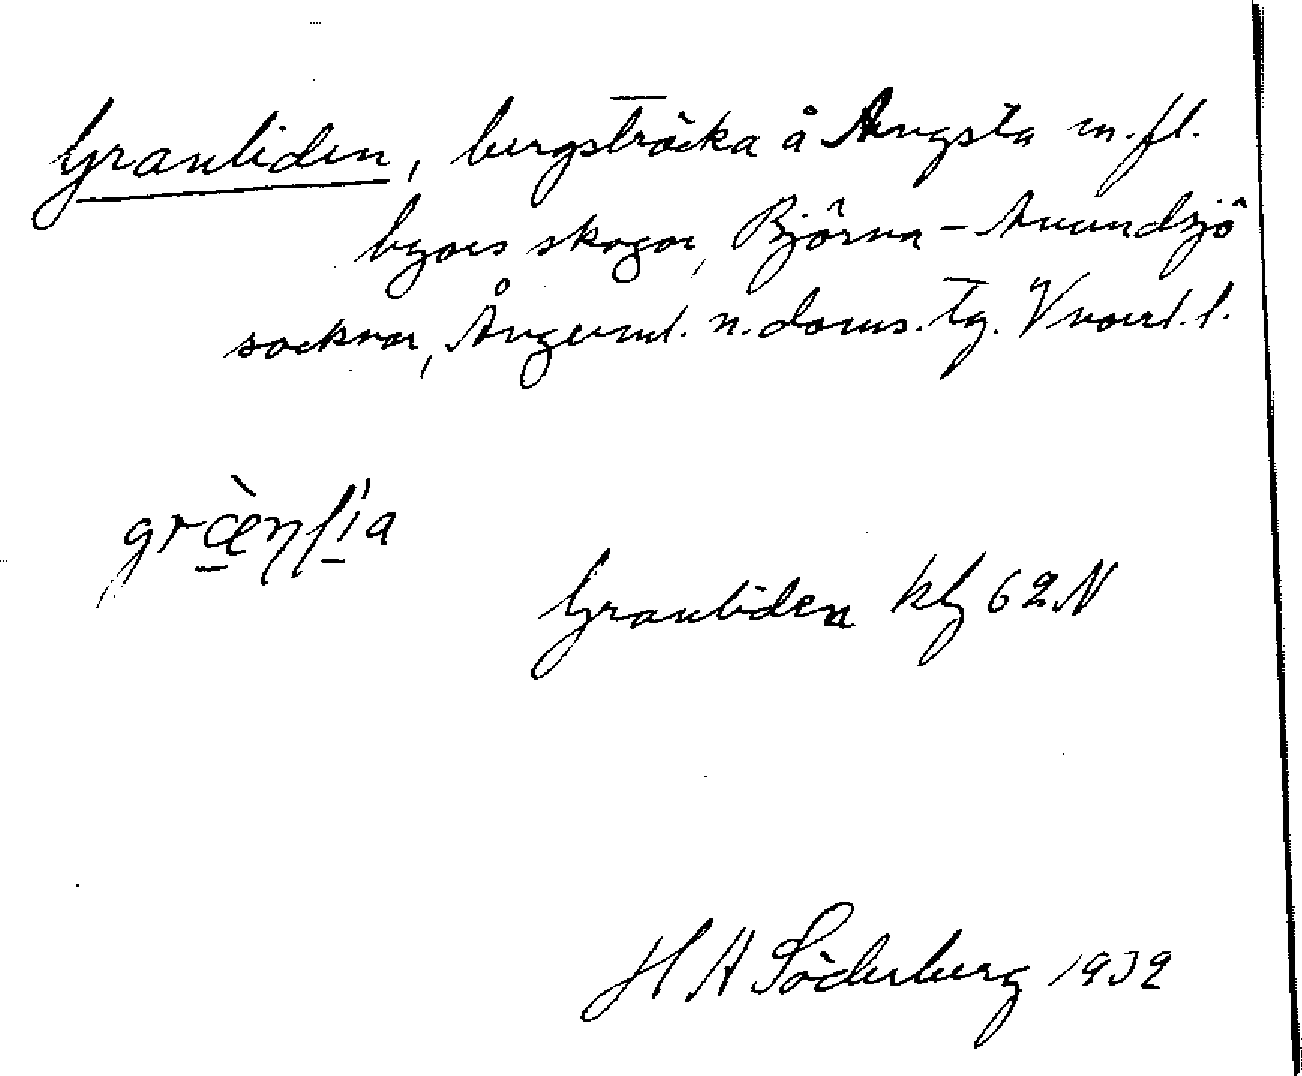 Granliden, bergsträcka å Ängsta m. fl.
byars skogar, Björna - Anundsjö
socknar, Ångerml. n. doms. tg. Vnorrl. l.
græ̀nlia
Granliden kbl 62 N
H A Söderberg 1932